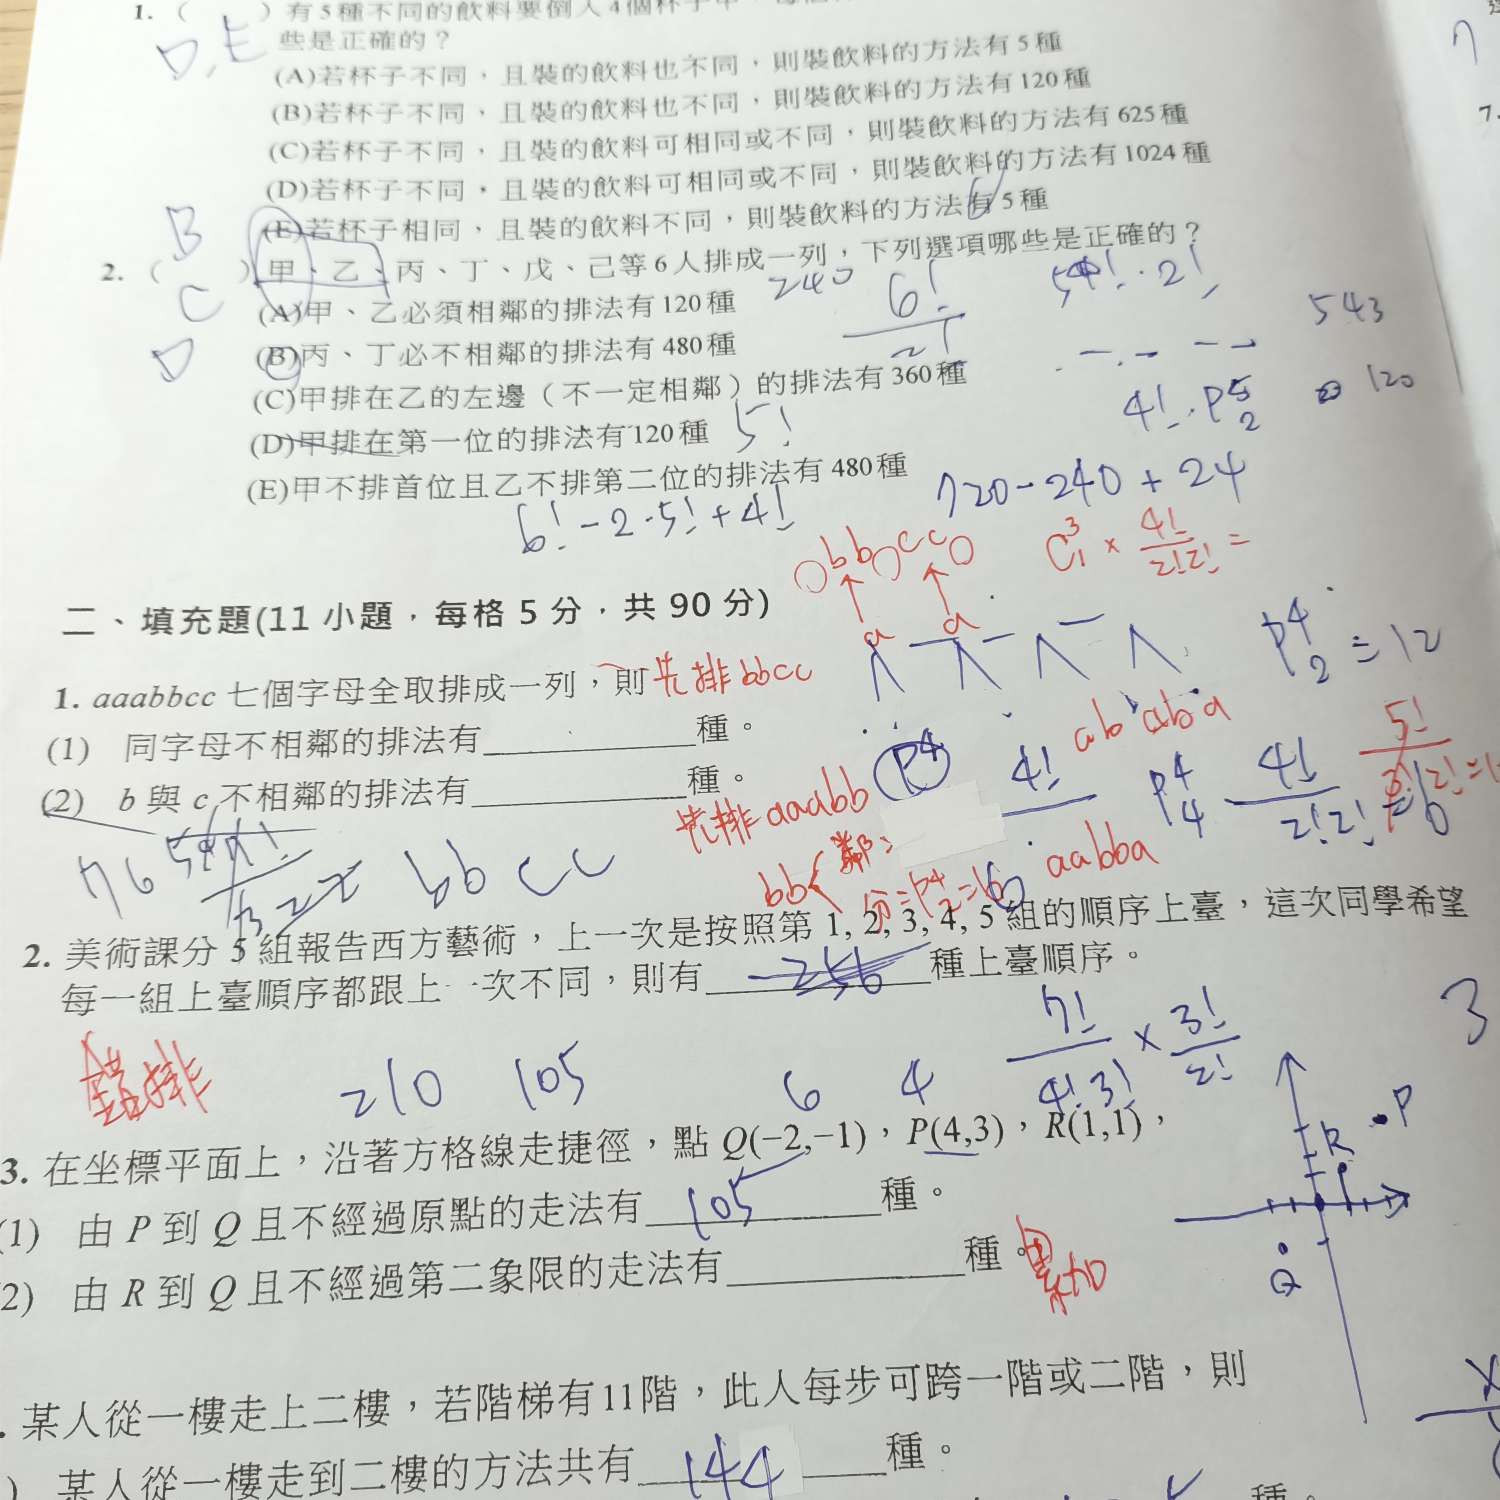 1. ( ) 有5種不同的飲料要倒入4個杯子中,
些是正確的?
D, E
(A)若杯子不同,且裝的飲料也不同,則裝飲料的方法有5種
(B)若杯子不同,且裝的飲料也不同,則裝飲料的方法有120種
(C)若杯子不同,且裝的飲料可相同或不同,則裝飲料的方法有625種
(D)若杯子不同,且裝的飲料可相同或不同,則裝飲料的方法有1024種
(E)若杯子相同,且裝的飲料不同,則裝飲料的方法有5種
B
2. ( ) 甲、乙、丙、丁、戊、己等6人排成一列,下列選項哪些是正確的?
C
(A)甲、乙必須相鄰的排法有120種 240 6!/2!
D
(B)丙、丁必不相鄰的排法有480種
543
4!·P⁵₂ 120
(C)甲排在乙的左邊(不一定相鄰)的排法有360種
(D)甲排在第一位的排法有120種 5!
(E)甲不排首位且乙不排第二位的排法有480種
720-240+24
6!-2·5!+4!
○bb○cc○ C³₁×4!/2!2!=
a a
二、填充題(11小題,每格5分,共90分)
P⁴₂=12
1. aaabbcc七個字母全取排成一列,則 先排bbcc
(1) 同字母不相鄰的排法有__________種。
P⁴ 4! ab aba
P⁴₄ 4!/2!2!=6
(2) b與c不相鄰的排法有__________種。
先排aaabb
bb< 鄰:
aabba
bb cc
2. 美術課分5組報告西方藝術,上一次是按照第1, 2, 3, 4, 5組的順序上臺,這次同學希望
每一組上臺順序都跟上一次不同,則有 256 種上臺順序。
錯排
210 105 6 4 7!/4!3!×3!/2!
3
3. 在坐標平面上,沿著方格線走捷徑,點Q(−2,−1),P(4,3),R(1,1),
P
R
Q
(1) 由P到Q且不經過原點的走法有 105 種。
2) 由R到Q且不經過第二象限的走法有__________種。
累加
. 某人從一樓走上二樓,若階梯有11階,此人每步可跨一階或二階,則
) 某人從一樓走到二樓的方法共有 144 種。
種。